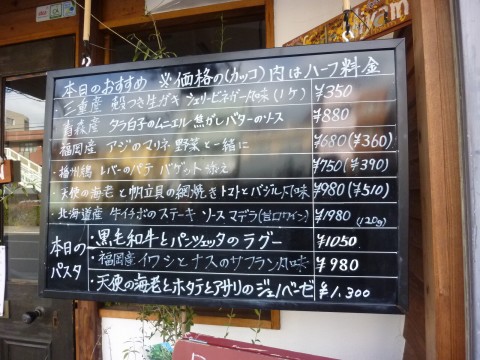 本日のおすすめ ※価格の(カッコ)内はハーフ料金
三重産 殻つき生ガキ シェリービネガー風味(1ケ) ¥350
青森産 タラ白子のムニエル 焦がしバターのソース ¥880
福岡産 アジのマリネ 野菜と一緒に ¥680(¥360)
・播州鶏 レバーのパテ バゲット添え ¥750(¥390)
・天使の海老と帆立貝の網焼き トマトとバジル風味 ¥980(¥510)
・北海道産 牛イチボのステーキ ソースマデラ(甘口ワイン) ¥1980(120g)
本日のパスタ
・黒毛和牛とパンツェッタのラグー ¥1050
・福岡産イワシとナスのサフラン風味 ¥980
・天使の海老とホタテとアサリのジェノベーゼ ¥1,300